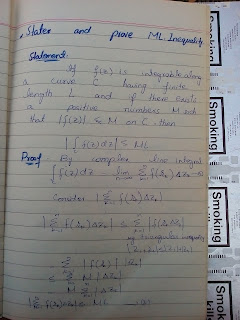 • State and prove ML Inequality.
Statement:
If f(z) is integrable along
a curve C having finite
length L and if there exists
a positive number M such
that |f(z)| ≤ M on C. then
|∫f(z)dz| ≤ ML
Proof: By complex line integral
∫f(z)dz = lim Σ f(ξ)ΔZ
Consider |Σ f(ξ)ΔZ|
|Σ f(ξ)ΔZ| ≤ Σ |f(ξ)ΔZ|
by triangular inequality
|z₁+z₂| ≤ |z₁|+|z₂|
Σ |f(ξ)|
≤ Σ M |ΔZ|
M Σ |ΔZ|
≤ ML
Smoking
kills
Smoking
Smoking